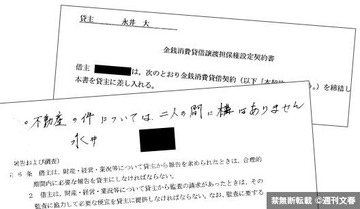 貸主 永井 大
金銭消費貸借譲渡担保権設定契約書
借主
は、次のとおり金銭消費貸借契約(以下「本契
う。)を締結し
本書を貸主に差し入れる。
。不動産の件については二人の間に構はありません
永井
報告および調査)
6条 借主は、財産・経営・業況等について貸主から報告を求められたときは、合理的
期間内に必要な報告を貸主にしなければならない。
2 借主は、財産・経営・業況等について貸主から監査の請求があったときは、その
監査に協力して必要な便宜を貸主に提供しなければならない。なお、監査に要する
禁無断転載 ©週刊文春